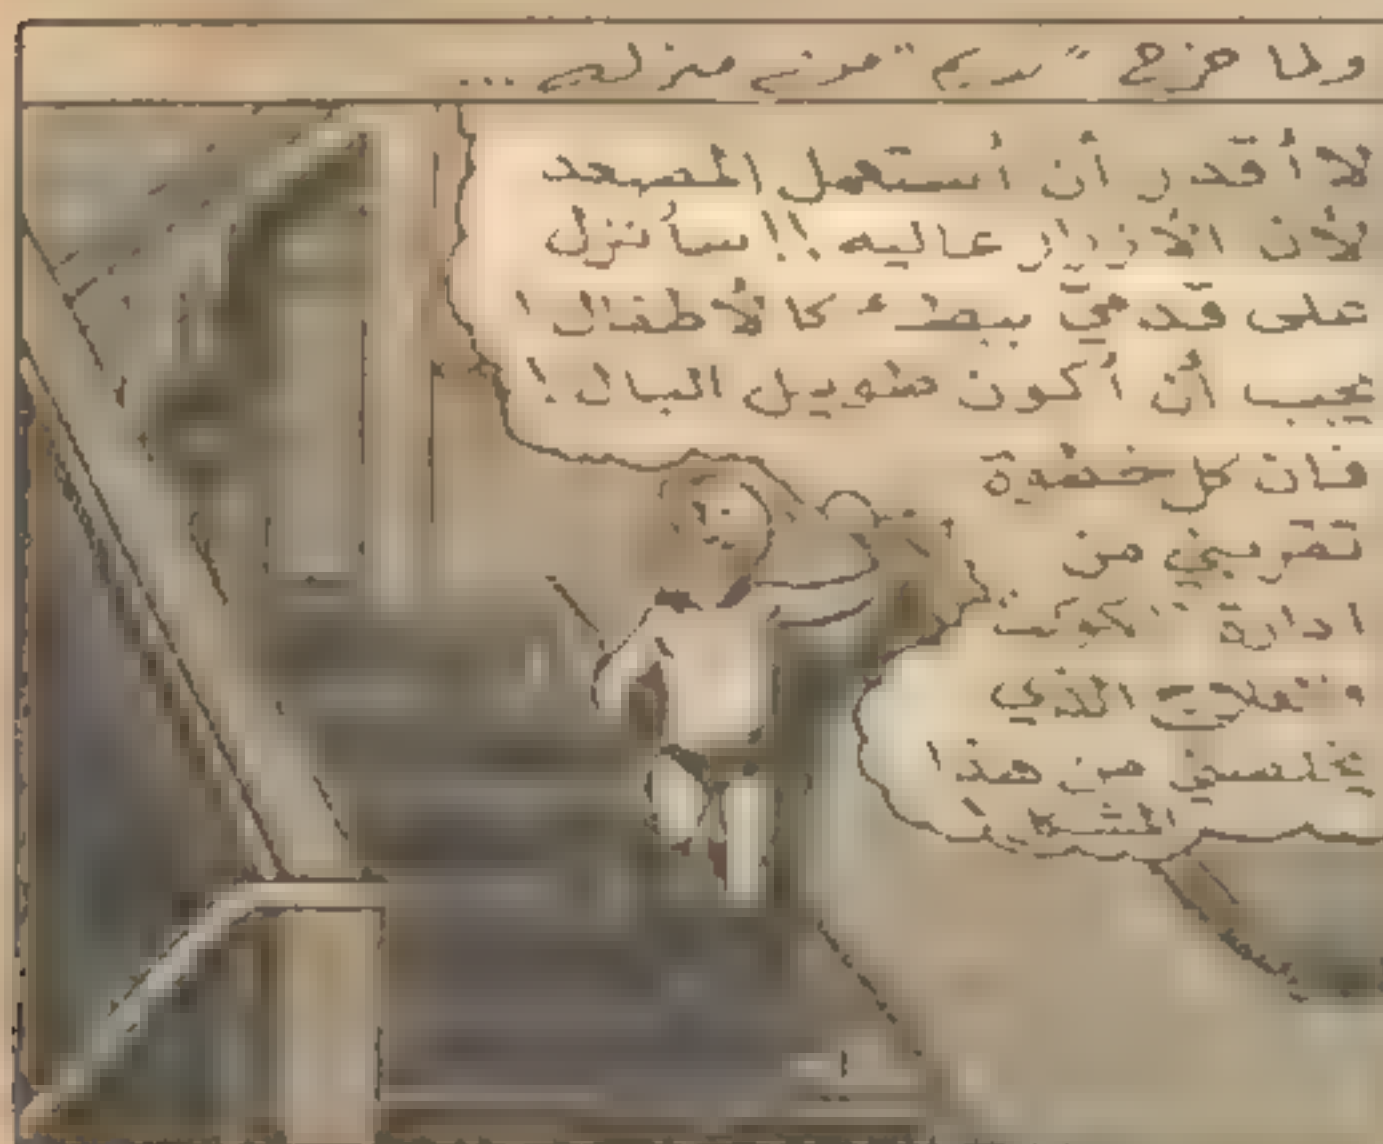 ولما خرج "ريم" من منزله ...
لا أقدر أن أستعمل المصعد
لأن الأزرار عاليه !! سأنزل
على قدمي ببطء كالأطفال !
يجب أن أكون طويل البال !
فان كل خطوة
تقربني من
ادارة
الذي
من هذا